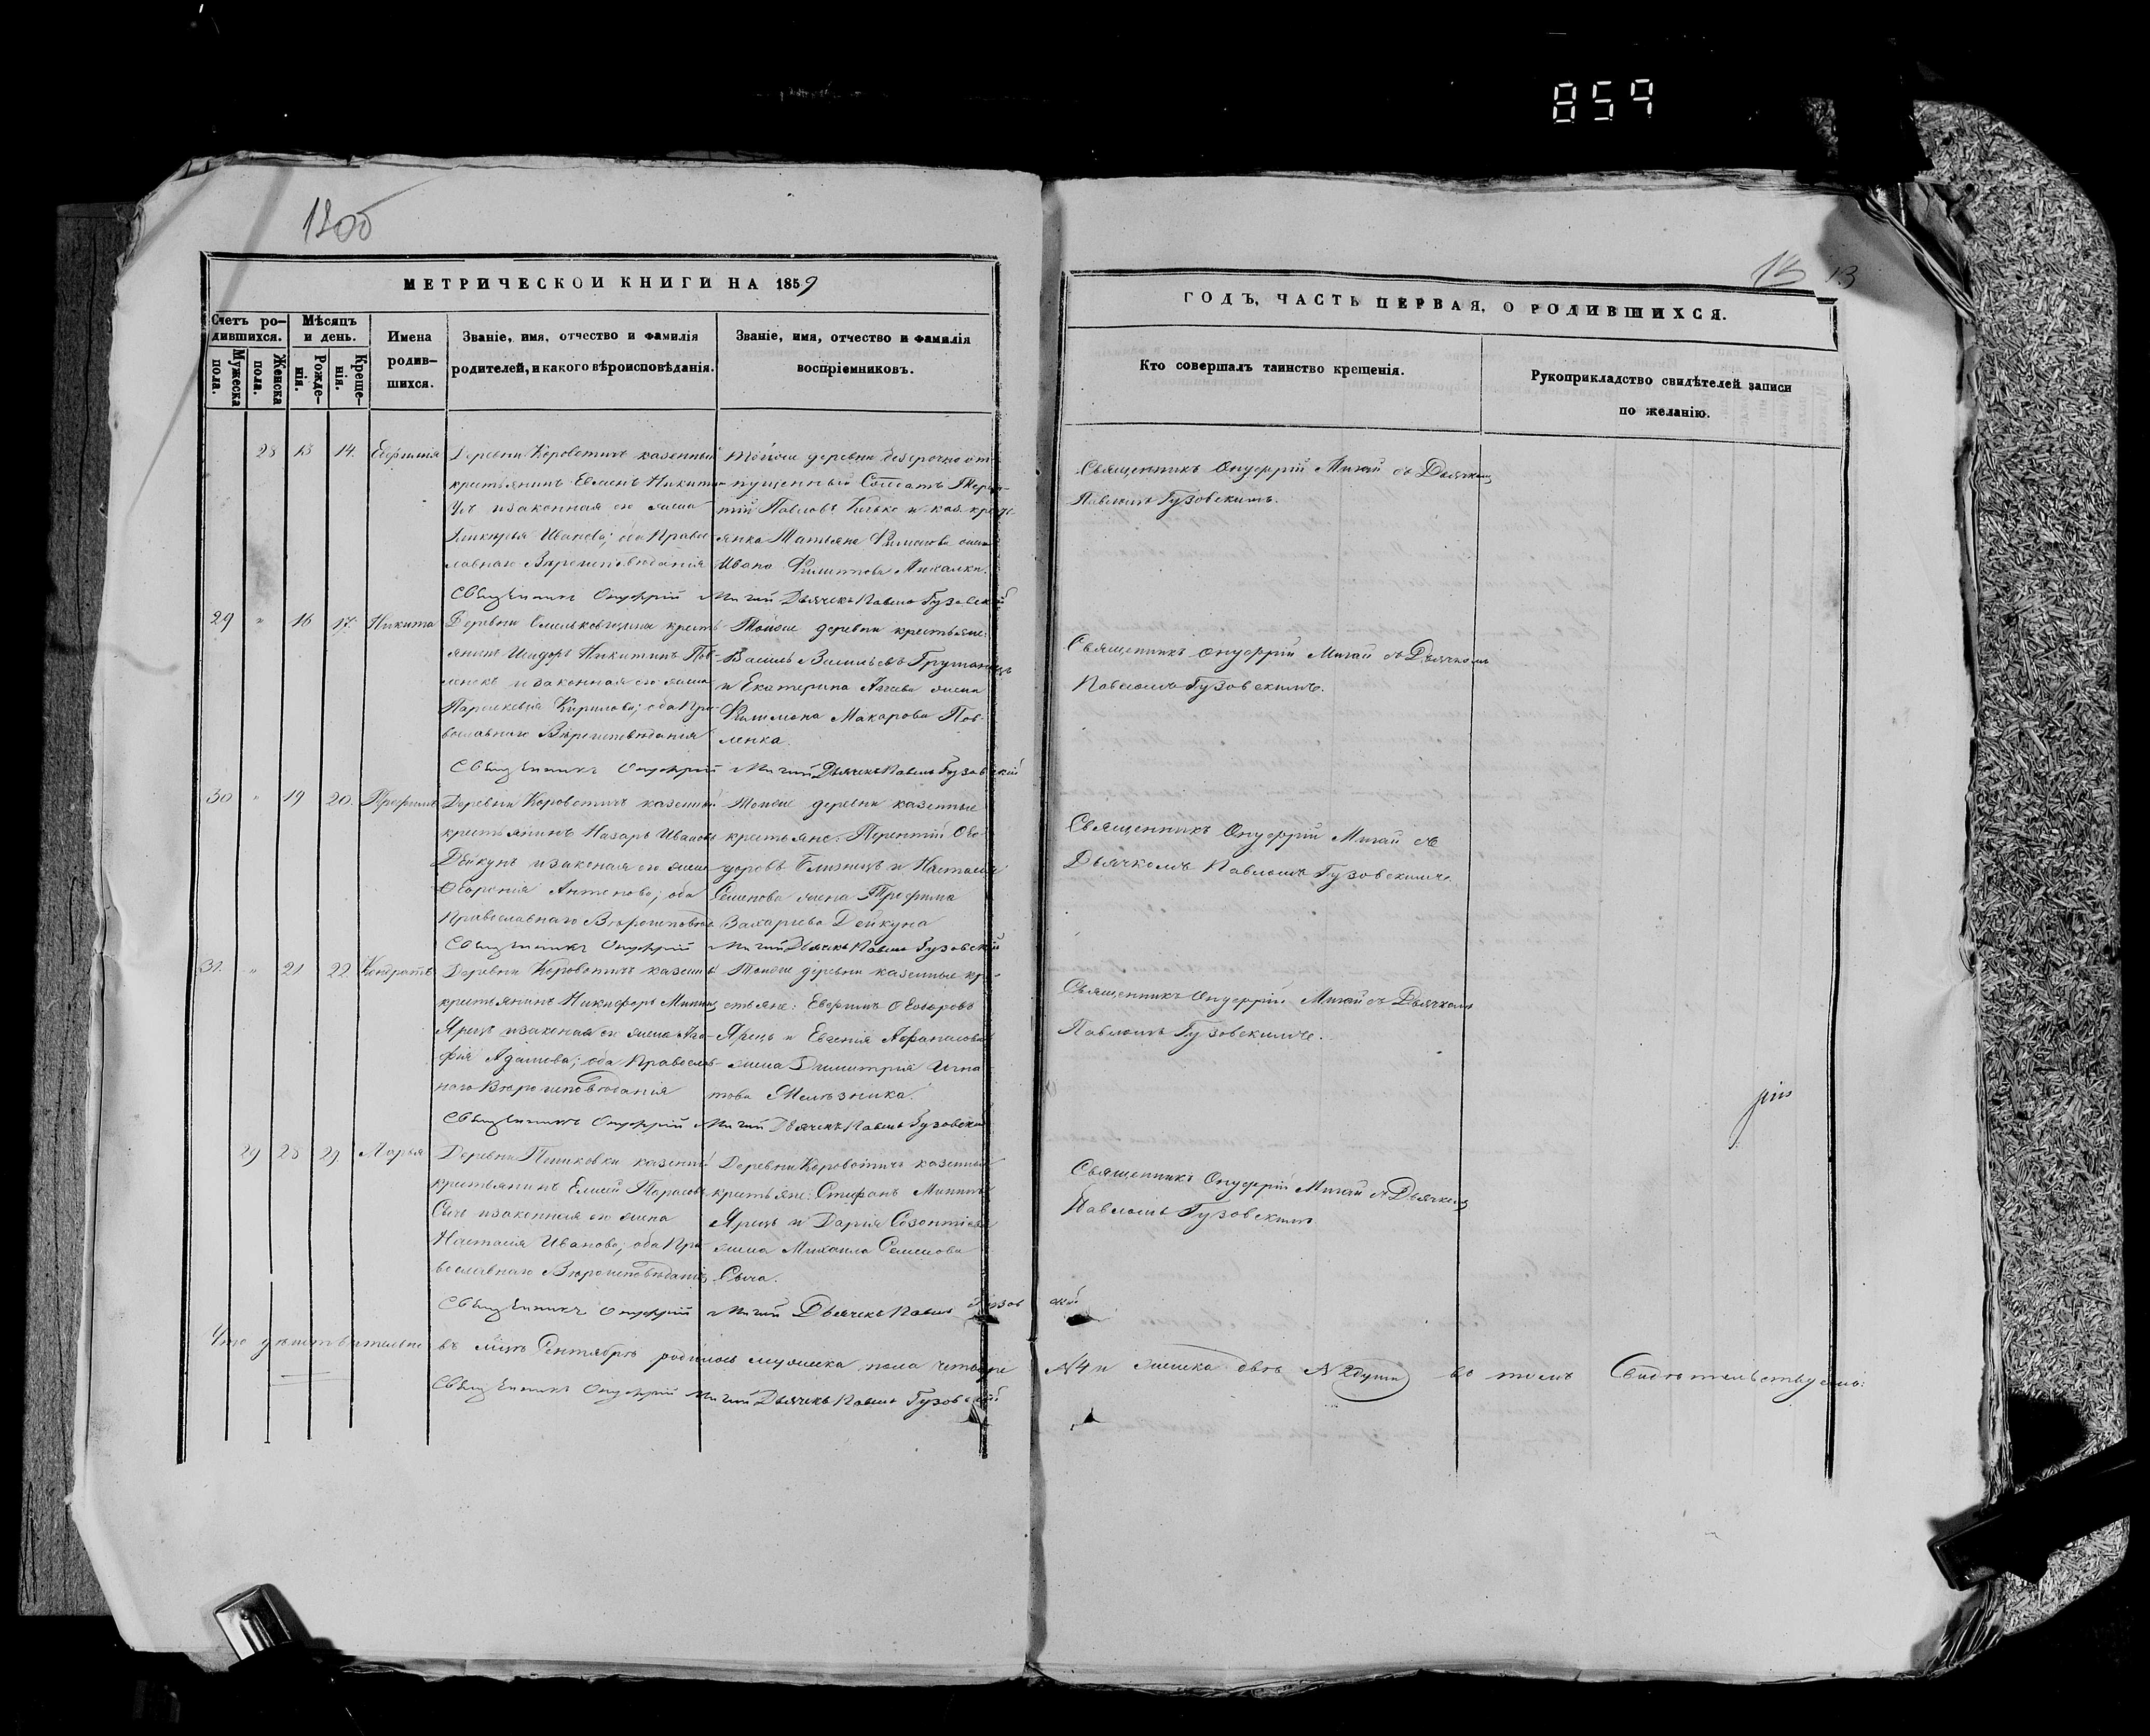 859
1300
13
МЕТРИЧЕСКОЙ КНИГИ НА 1859
ГОДЪ, ЧАСТЬ ПЕРВАЯ, О РОДИВШИХСЯ.
Счетъ ро-
дившихся.
Мужеска
пола.
Женска
пола.
Мѣсяцъ
и день.
Рожде-
нія.
Креще-
нія.
Имена
родив-
шихся.
Званіе, имя, отчество и фамилія
родителей, и какого вѣроисповѣданія.
Званіе, имя, отчество и фамилія
воспріемниковъ.
Кто совершалъ таинство крещенія.
Рукоприкладство свидѣтелей записи
по желанію.
28 13 14. Евфимія
Деревни Коровотичъ казенный
крестьянинъ Евменъ Никитинъ
и законная его жена
Иванова; оба Право-
славнаго Вѣроисповѣданія
тойже деревни безсрочно от-
пущенный Солдатъ
Павловъ и каз. кресть-
янка Татьяна жена
Ивана Филиппова
Священникъ Онуфрій Мигай съ Дьячкомъ
Павломъ Гузовскимъ.
Священникъ Онуфрій Мигай Дьячекъ Павелъ Гузовскій
29 " 16 17. Никита
Деревни Омельковщина кресть-
янинъ Исидоръ Никитинъ Пов-
ленокъ и законная его жена
Параскевія Кирилова; оба Пра-
вославнаго Вѣроисповѣданія
Тойже деревни крестьяне:
Василь Васильевъ
и Екатерина жена
Филимона Макарова Пов-
ленка.
Священникъ Онуфрій Мигай съ Дьячкомъ
Павломъ Гузовскимъ.
Священникъ Онуфрій Мигай Дьячекъ Павелъ Гузовскій
30 " 19 20. Трофимъ
Деревни Коровотичъ казенный
крестьянинъ Назаръ Ивановъ
Дейкунъ и законая его жена
Антонова; оба
Православнаго Вѣроисповѣд
Тойже деревни казенные
крестьяне: Терентій Ѳео-
доровъ Близнецъ и Настасія
Семенова жена Трофима
Захарьева Дейкуна
Священникъ Онуфрій Мигай съ
Дьячкомъ Павломъ Гузовскимъ.
Священникъ Онуфрій Мигай Дьячекъ Павелъ Гузовскій
31. " 21 22. Кондратъ
Деревни Коровотичъ казенны
крестьянинъ Никифоръ Мининъ
Ярецъ и законая его жена Ага-
фія Адамова; оба Православ-
наго Вѣроисповѣданія
Тойже деревни казенные кре-
стьяне: Евфимъ Ѳеодоровъ
Ярецъ и Евгенія Афанасова
жена Димитрія Игна-
това
Священникъ Онуфрій Мигай съ Дьячкомъ
Павломъ Гузовскимъ.
Священникъ Онуфрій Мигай Дьячекъ Павелъ Гузовскій
29 28 29. Марья
Деревни казенны
крестьянинъ Елисей Тарасовъ
Сычъ и законная его жена
Настасія Иванова; оба Пра-
вославнаго Вѣроисповѣданія
Деревни Коровотичъ казенны
крестьяне: Стефанъ Мининъ
Ярецъ и Дарія Созонтіева
жена Михаила Семенова
Сыча.
Священникъ Онуфрій Мигай съ Дьячкомъ
Павломъ Гузовскимъ
Священникъ Онуфрій Мигай Дьячекъ Павелъ Гузовскій
Что дѣйствительно въ Сентябрѣ родилось мужеска пола четыре №4 и женска двѣ №2 души въ томъ Свидѣтельствуемъ:
Священникъ Онуфрій Мигай Дьячекъ Павелъ Гузовскій